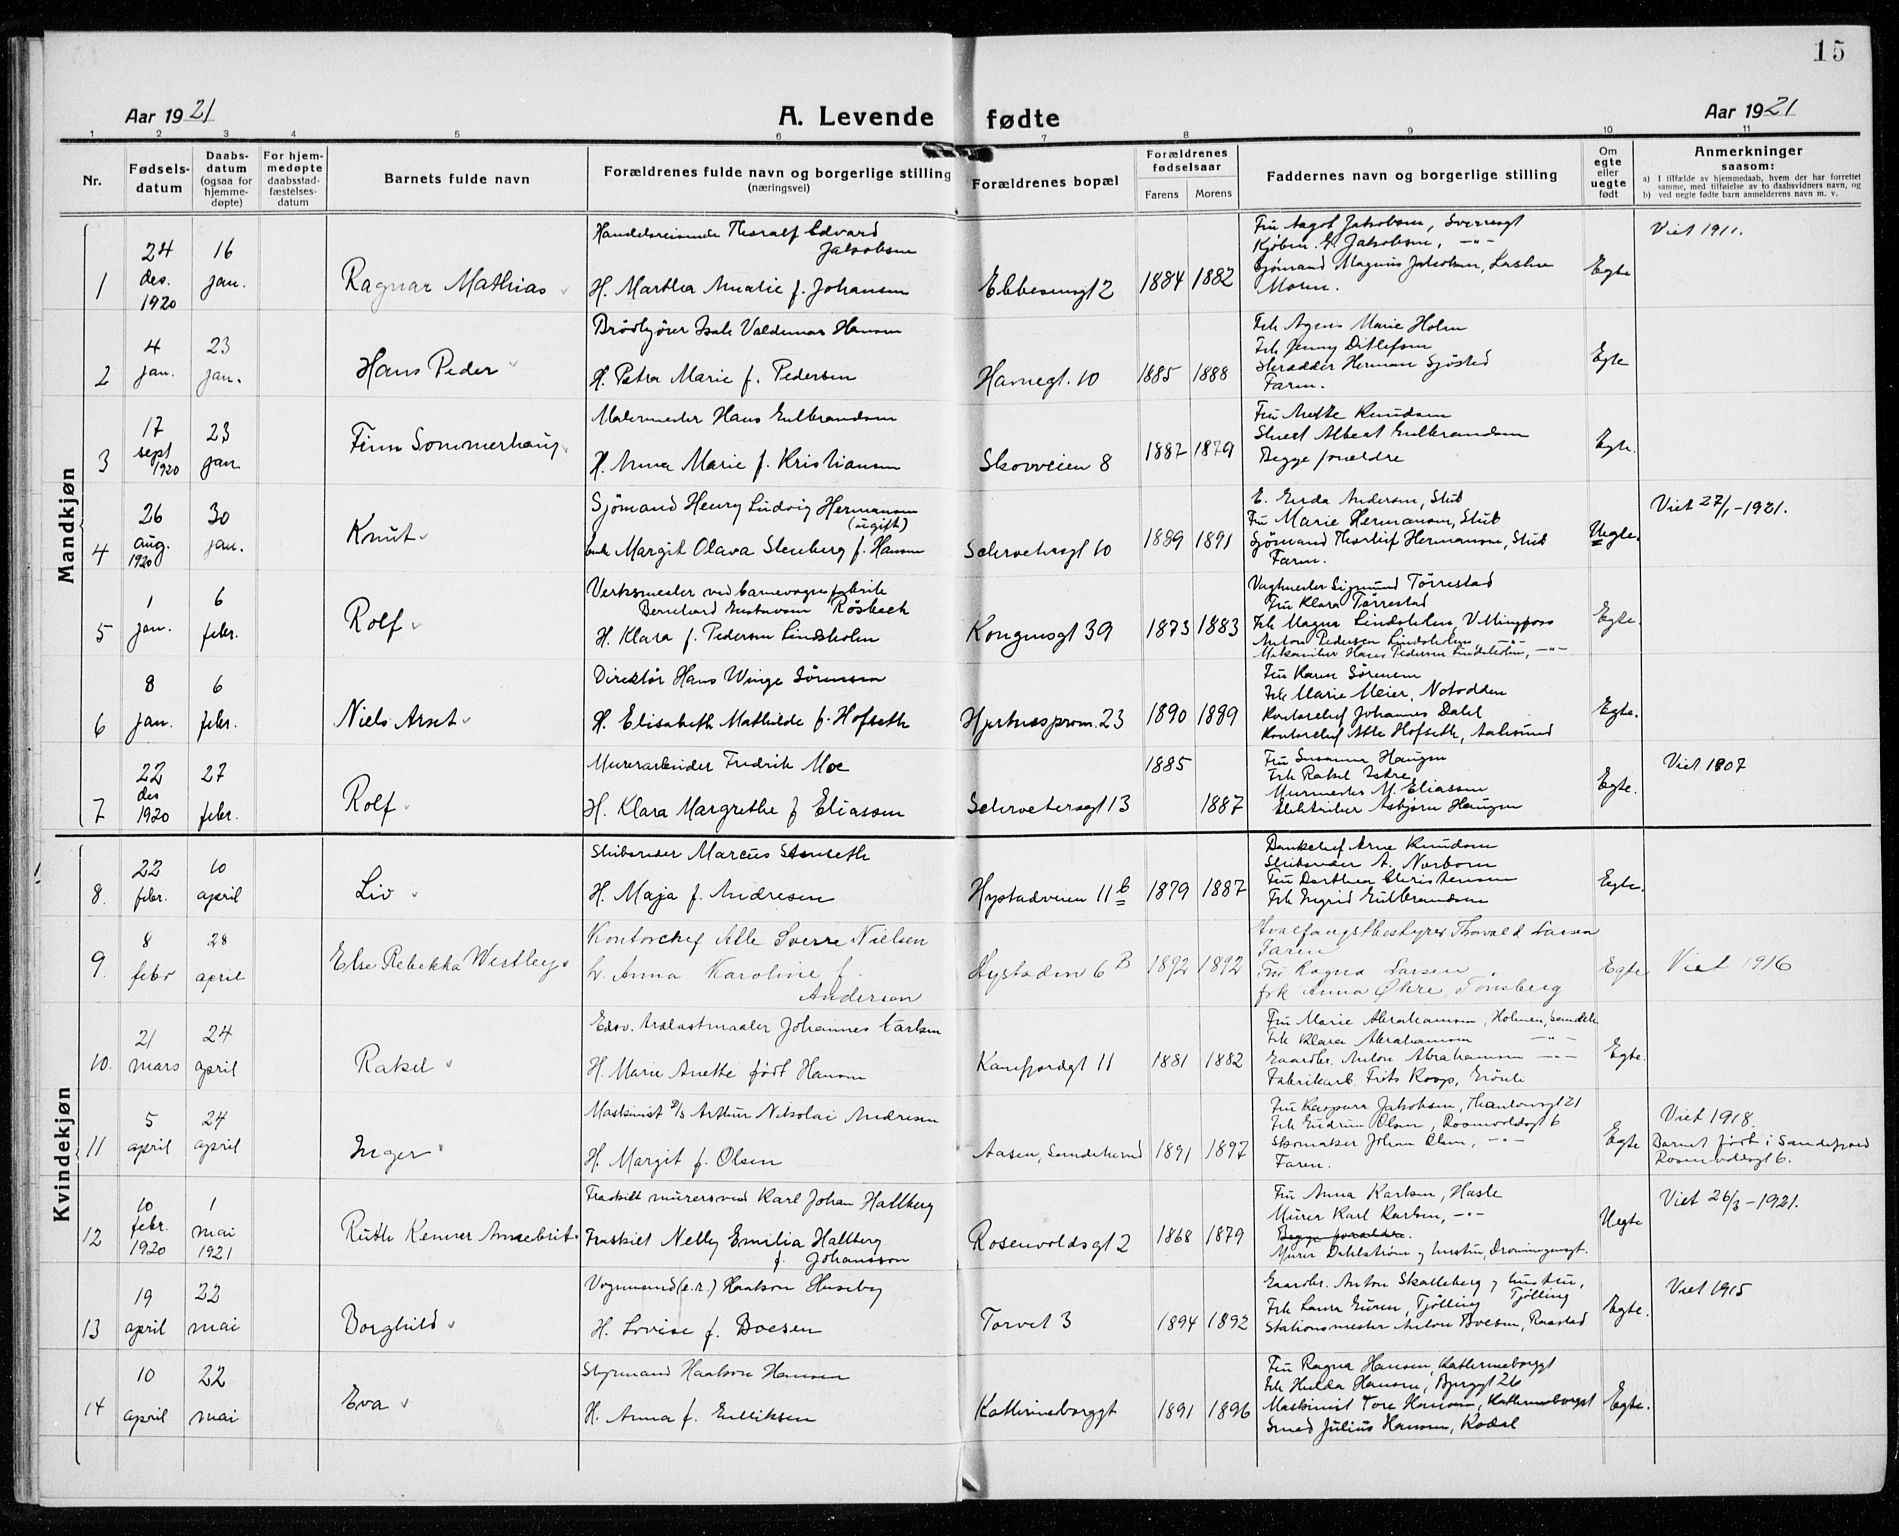 15
Aar 1921 A. Levende fødte Aar 1921
1 2 3 4 5 6 7 8 9 10 11
Nr. Fødsels-datum Daabs-datum (ogsaa for hjemme-døpte) For hjem-medøpte daabsstad-fæstelses-datum Barnets fulde navn Forældrenes fulde navn og borgerlige stilling (næringsvei) Forældrenes bopæl Forældrenes fødselsaar Farens Morens Faddernes navn og borgerlige stilling Om egte eller uegte født Anmerkninger saasom:
a) I tilfælde av hjemmedaab, hvem der har forrettet samme, med tilføielse av to daabsvidners navn, og
b) ved uegte fødte barn anmelderens navn m. v.
Mandkjøn
1 24 des. 1920 16 jan. Ragnar Mathias
Handelsreisende Thoralf Edvard
Jakobsen
H. Martha Amalie f. Johansen
1884 1882
Fru Aagot Jakobsen,
Jakobsen, -"-
Sjømand Magnus Jakobsen,
Moren.
Egte
Viet 1911.
2 4 jan. 23 jan. Hans Peder
Isak Valdemar Hansen
H. Petra Marie f. Pedersen
Havnegt. 10 1885 1888
Frk Agnes Marie Holm
Frk Jenny Ditlefsen
Skrædder Herman Sjøsted
Faren.
Egte
3 17 sept 1920 23 jan Finn Sommerhaug
Malermester Hans Gulbrandsen
H. Anna Marie f. Kristiansen
Skovveien 8 1887 1879
Fru Anette Knudsen
Albert Gulbrandsen
Begge forældre
Egte.
4 26 aug. 1920 30 jan. Knut
Sjömand Henry Ludvig Hermansen
(ugift)
Margit Olava Stenberg f. Hansen
1889 1891
Andersen, Stub
Fru Marie Hermansen, Stub
Sjömand Thorleif Hermansen, Stub
Faren.
Uegte.
Viet 27/1-1921.
5 1 jan. 6 febr. Rolf
Verksmester ved barnevognfabrik
Bernhard Gustavsen Røsbeck
H. Klara f. Pedersen Lindsholm
Kongensgt 39 1873 1883
Vagtmester Sigmund Tørrestad
Fru Klara Tørrestad
Frk Magna
Anton Pedersen
Mekaniker Hans Pedersen -"-
Egte.
6 8 jan. 6 febr. Niels Arnt
Direktör Hans Winge Sörensen
H. Elisabeth Mathilde f. Hofseth
Hjertnesprom. 23 1890 1889
Fru Karen Sörensen
Frk Marie Meier, Notodden
Kontorchef Johannes Dahl
Kontorchef Atle Hofseth, Aalesund
Egte.
7 22 des 1920 27 febr. Rolf
Murerarbeider Fredrik Moe
H. Klara Margrethe f Eliassen
1885 1887
Fru Susanna Haugen
Frk Rakel
Murmester M. Eliassen
Elektriker Asbjørn Haugen
Egte.
Viet 1907
Kvindekjøn
8. 22 febr. 10 april Liv
Skibsreder Marcus Stenseth
H. Maja f. Andresen
Hystadveien 11 b 1879 1887
Bankchef Arne Knudsen
Skibsreder A. Norbom
Fru Dorthea Christensen
Frk Ingrid Gulbrandsen
Egte.
9. 8 febr 28 april Else Rebekka Westbey
Kontorchef Atle Sverre Nielsen
h. Anna Karoline f.
Andersen
Hystadvn 6 B 1892 1892
Hvalfangstbestyrer Thorvald Larsen
Faren
Fru Ragna Larsen
frk Anna Øhre, Tønsberg
Egte
Viet 1916
10. 21 mars 24 april Rakel
Trælastmaaler Johannes Carlsen
H. Marie Anette født Hansen
11 1881 1882
Fru Marie Abrahamsen, Holmen,
Frk Klara Abrahamsen -"-
Gaardbr. Anton Abrahamsen -"-
Fabrikarb. Frits Koop,
Egte.
11 5 april 24 april Inger
Maskinist D/S Arthur Nikolai Andresen
H. Margit f. Olsen
Aasen, 1891 1897
Jakobsen, 21
Frk Gudrun Olsen, Rosenvoldsgt 6
Skomaker Johan Olsen, -"-
Faren.
Egte
Viet 1918.
Barnet født i Sandefjord
Rosenvoldsgt 6.
12 10 febr. 1920 1 mai 1921
Fraskilt murersvend Karl Johan Hallberg
Fraskilt Nelly Emilia Hallberg
f. Johansson
Rosenvoldsgt 2 1868 1879
Fru Anna Karlsen, Hasle
Murer Karl Karlsen, -"-
Begge forældre.
Murer Dahlstrøm og hustru, Dronningensgt.
Uegte
Viet 26/3-1921.
13 19 april 22 mai Borghild
Vognmand (e.r.) Haakon Huseby
H. Lovise f. Boesen
Torvet 3 1894 1892
Gaardbr. Anton Skalleberg og hustru,
Tjölling
Frk Laura Tjölling
Stationsmester Anton Boesen, Raastad
Egte.
Viet 1915
14 10 april 22 mai Eva
Styrmand Haakon Hansen
H. Anna f. Gulliksen
Kathrineborggt 1891 1896
Fru Ragna Hansen, Kathrineborggt
Frk Hulda Hansen, Bjerggt 26
Maskinist Tore Hansen, Kathrineborggt
Smed Julius Hansen, Kodal
Egte.